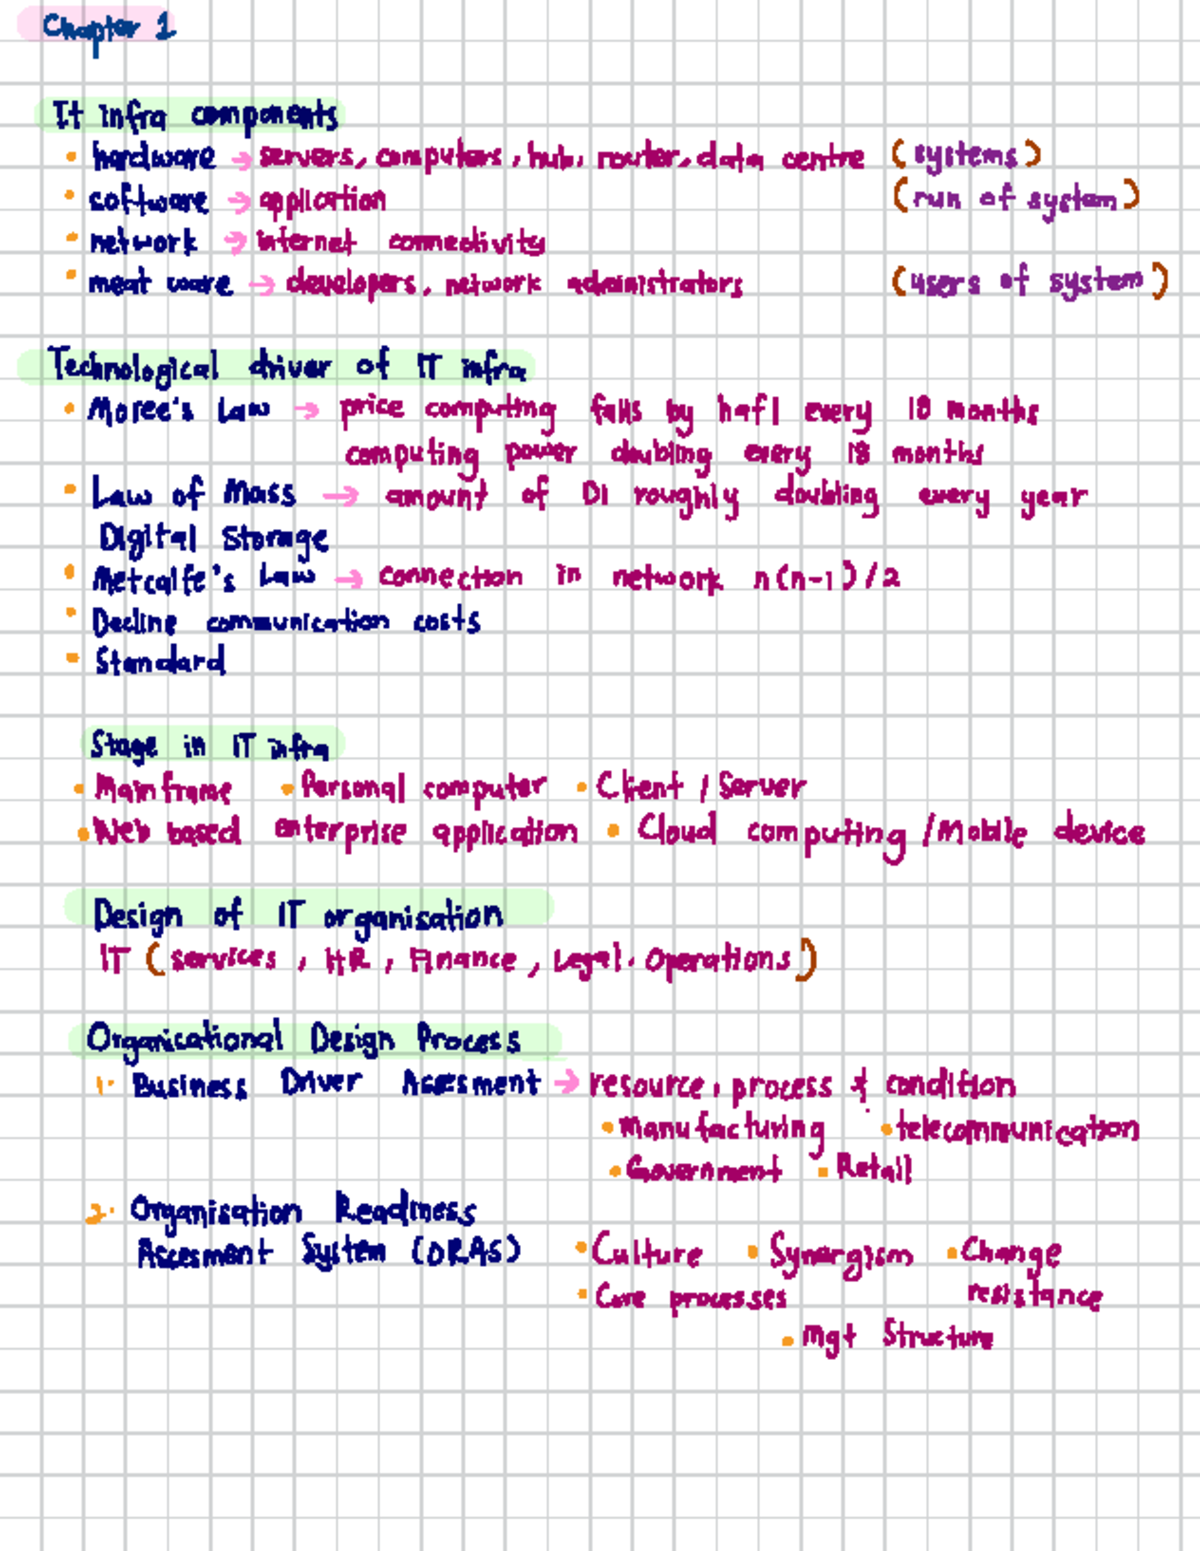 Chapter 1
It infra components
• hardware → servers, computers, hub, router, data centre (systems)
• software → application (run of system)
• network → internet connectivity
• meat ware → developers, network administrators (users of system)
Technological driver of IT infra
• Moree's Law → price computing falls by hafl every 18 months
computing power doubling every 18 months
• Law of Mass → amount of DI roughly doubling every year
Digital Storage
• Metcalfe's Law → connection in network n(n-1)/2
• Decline communication costs
• Standard
Stage in IT infra
• Mainframe • Personal computer • Client / Server
• Web based enterprise application • Cloud computing / Mobile device
Design of IT organisation
IT (services, HR, Finance, Legal, Operations)
Organisational Design Process
1. Business Driver Assesment → resource, process & condition
• Manufacturing • telecommunication
• Government • Retail
2. Organisation Readiness
Assesment System (ORAS) • Culture • Synergism • Change
• Core processes resistance
• Mgt Structure